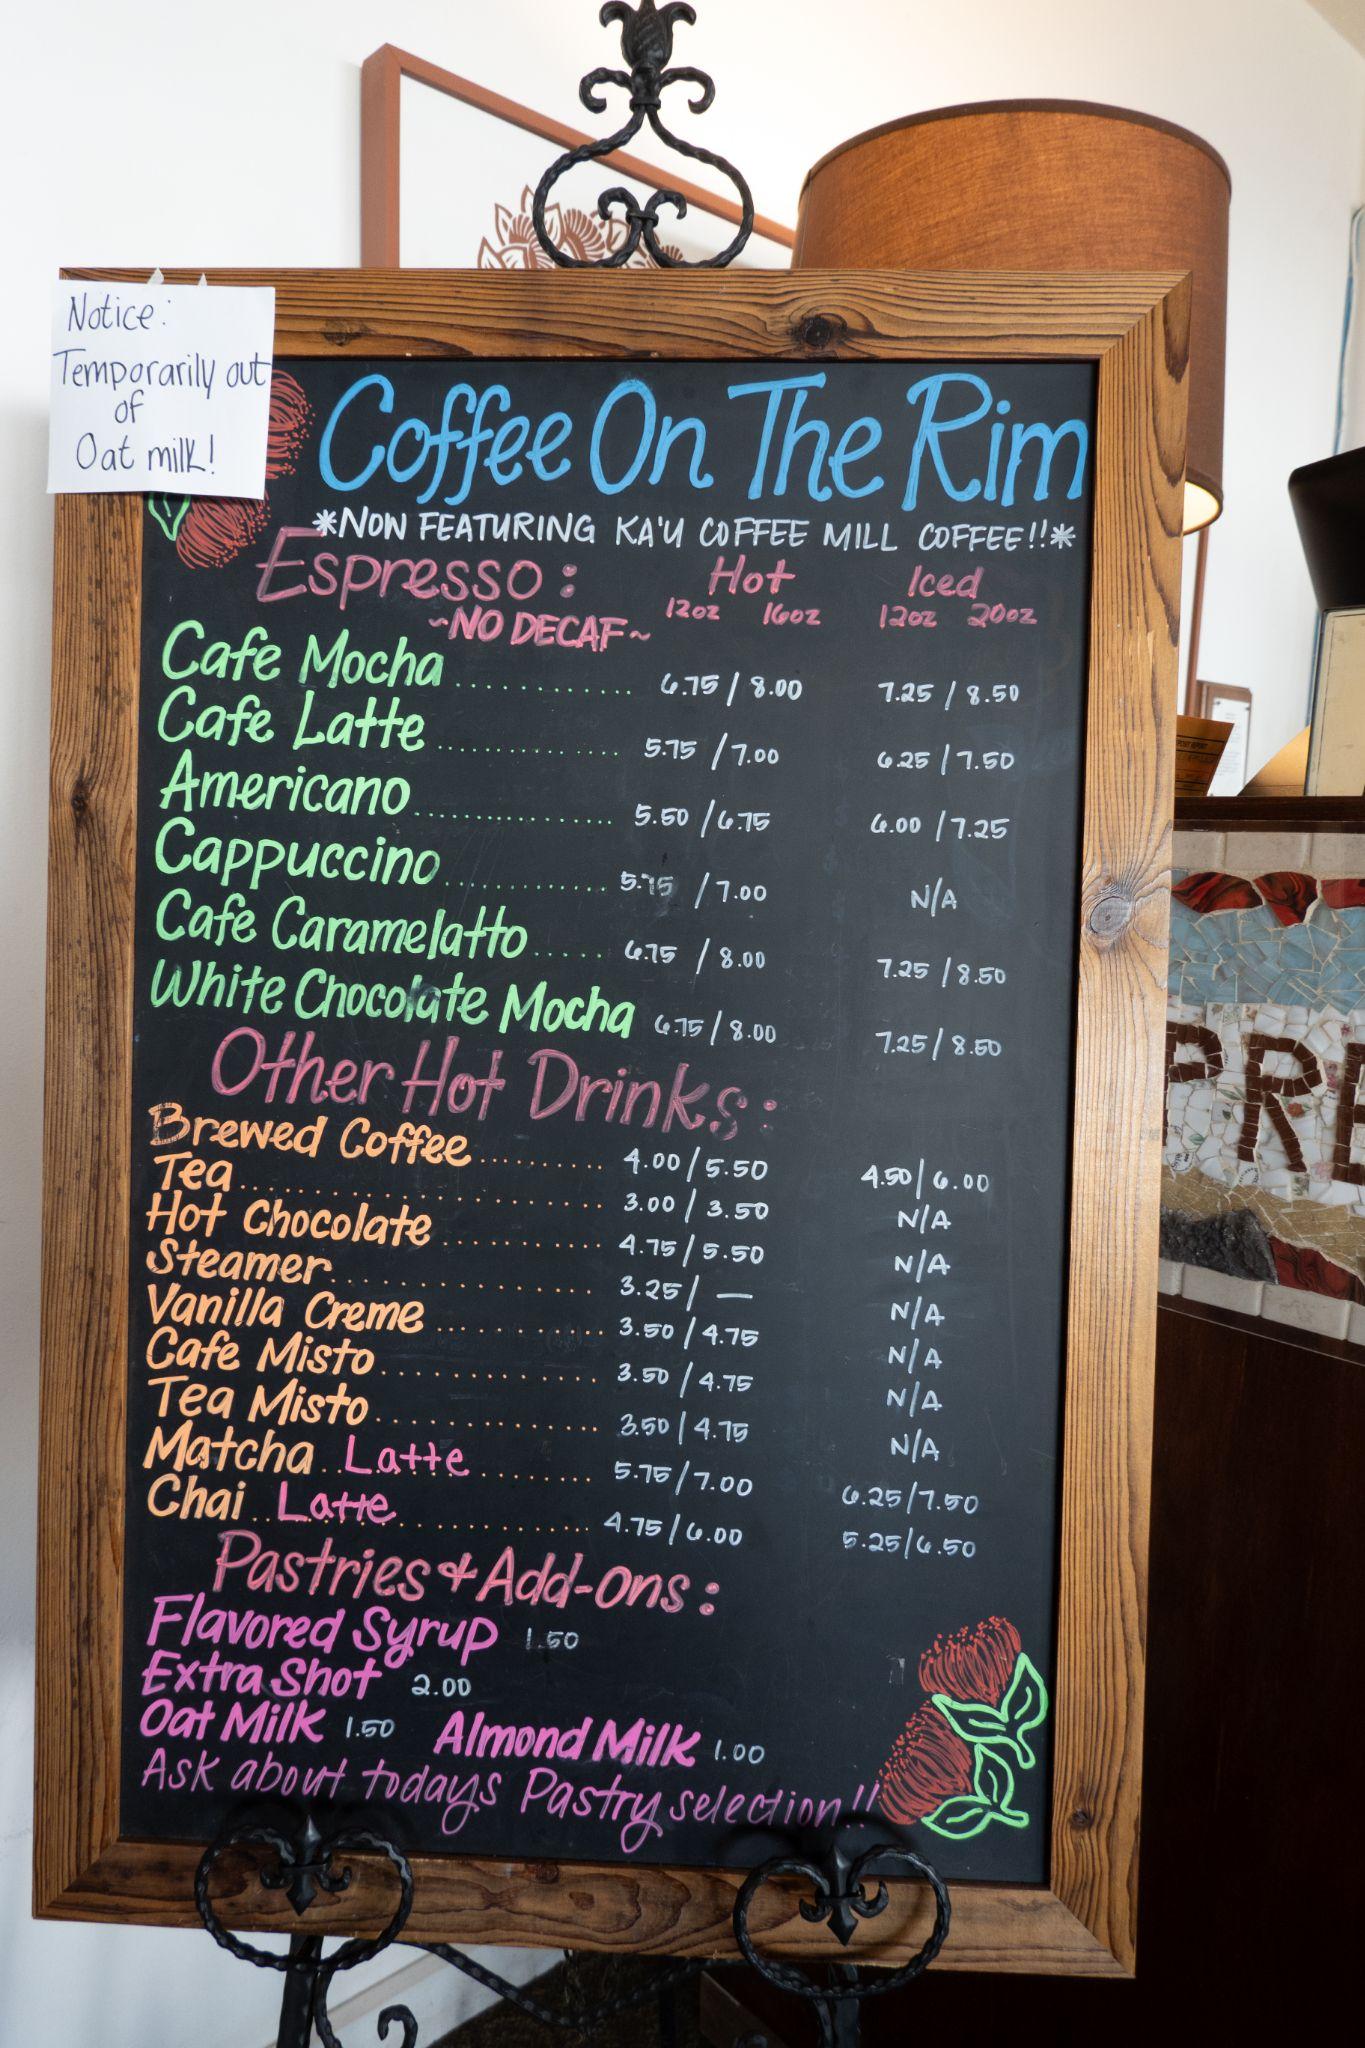 Notice:
Temporarily out
of
Oat milk!
Coffee On The Rim
*NOW FEATURING KA'U COFFEE MILL COFFEE!!*
Espresso: Hot Iced
~NO DECAF~ 12oz 16oz 12oz 20oz
Cafe Mocha ............. 6.75 / 8.00 7.25 / 8.50
Cafe Latte .................. 5.75 / 7.00 6.25 / 7.50
Americano ................... 5.50 / 6.75 6.00 / 7.25
Cappuccino ............... 5.75 / 7.00 N/A
Cafe Caramelatto ..... 6.75 / 8.00 7.25 / 8.50
White Chocolate Mocha 6.75 / 8.00 7.25 / 8.50
Other Hot Drinks:
Brewed Coffee .......... 4.00 / 5.50 4.50 / 6.00
Tea .............................. 3.00 / 3.50 N/A
Hot Chocolate ............. 4.75 / 5.50 N/A
Steamer ..................... 3.25 / — N/A
Vanilla Creme ............. 3.50 / 4.75 N/A
Cafe Misto .................. 3.50 / 4.75 N/A
Tea Misto ................... 3.50 / 4.75 N/A
Matcha .. Latte .......... 5.75 / 7.00 6.25 / 7.50
Chai .. Latte ............... 4.75 / 6.00 5.25 / 6.50
Pastries & Add-Ons:
Flavored Syrup 1.50
Extra Shot 2.00
Oat Milk 1.50 Almond Milk 1.00
Ask about todays Pastry selection!!
PRE